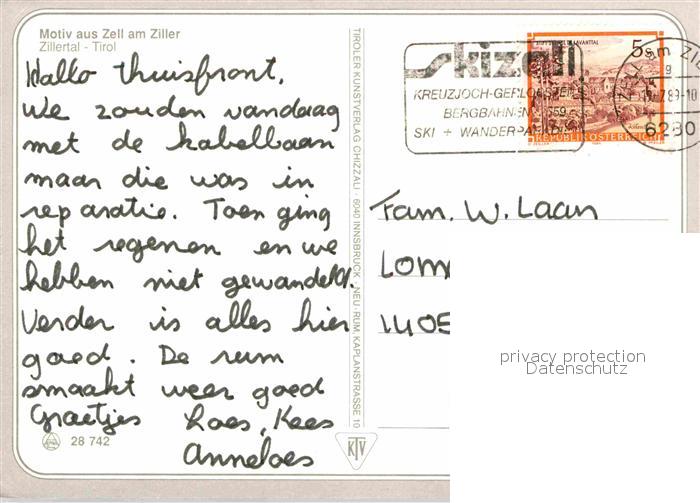 Motiv aus Zell am Ziller
Zillertal - Tirol
Hallo thuisfront,
We zouden vandaag
met de kabelbaan
maar die was in
reparatie. Toen ging
het regenen en we
hebben niet gewandeld.
Verder is alles hier
goed. De rum
smaakt weer goed
Groetjes Loes, Kees
Anneloes
28 742
TIROLER KUNSTVERLAG CHIZZALI · 6040 INNSBRUCK - NEU-RUM, KAPLANSTRASSE 10
KTV
skizell
KREUZJOCH-GERLOSSTEIN
BERGBAHNEN
SKI + WANDERPA
5
REPUBLIK ÖSTERREICH
6280
Fam. W. Laan
Lom
1405
privacy protection
Datenschutz